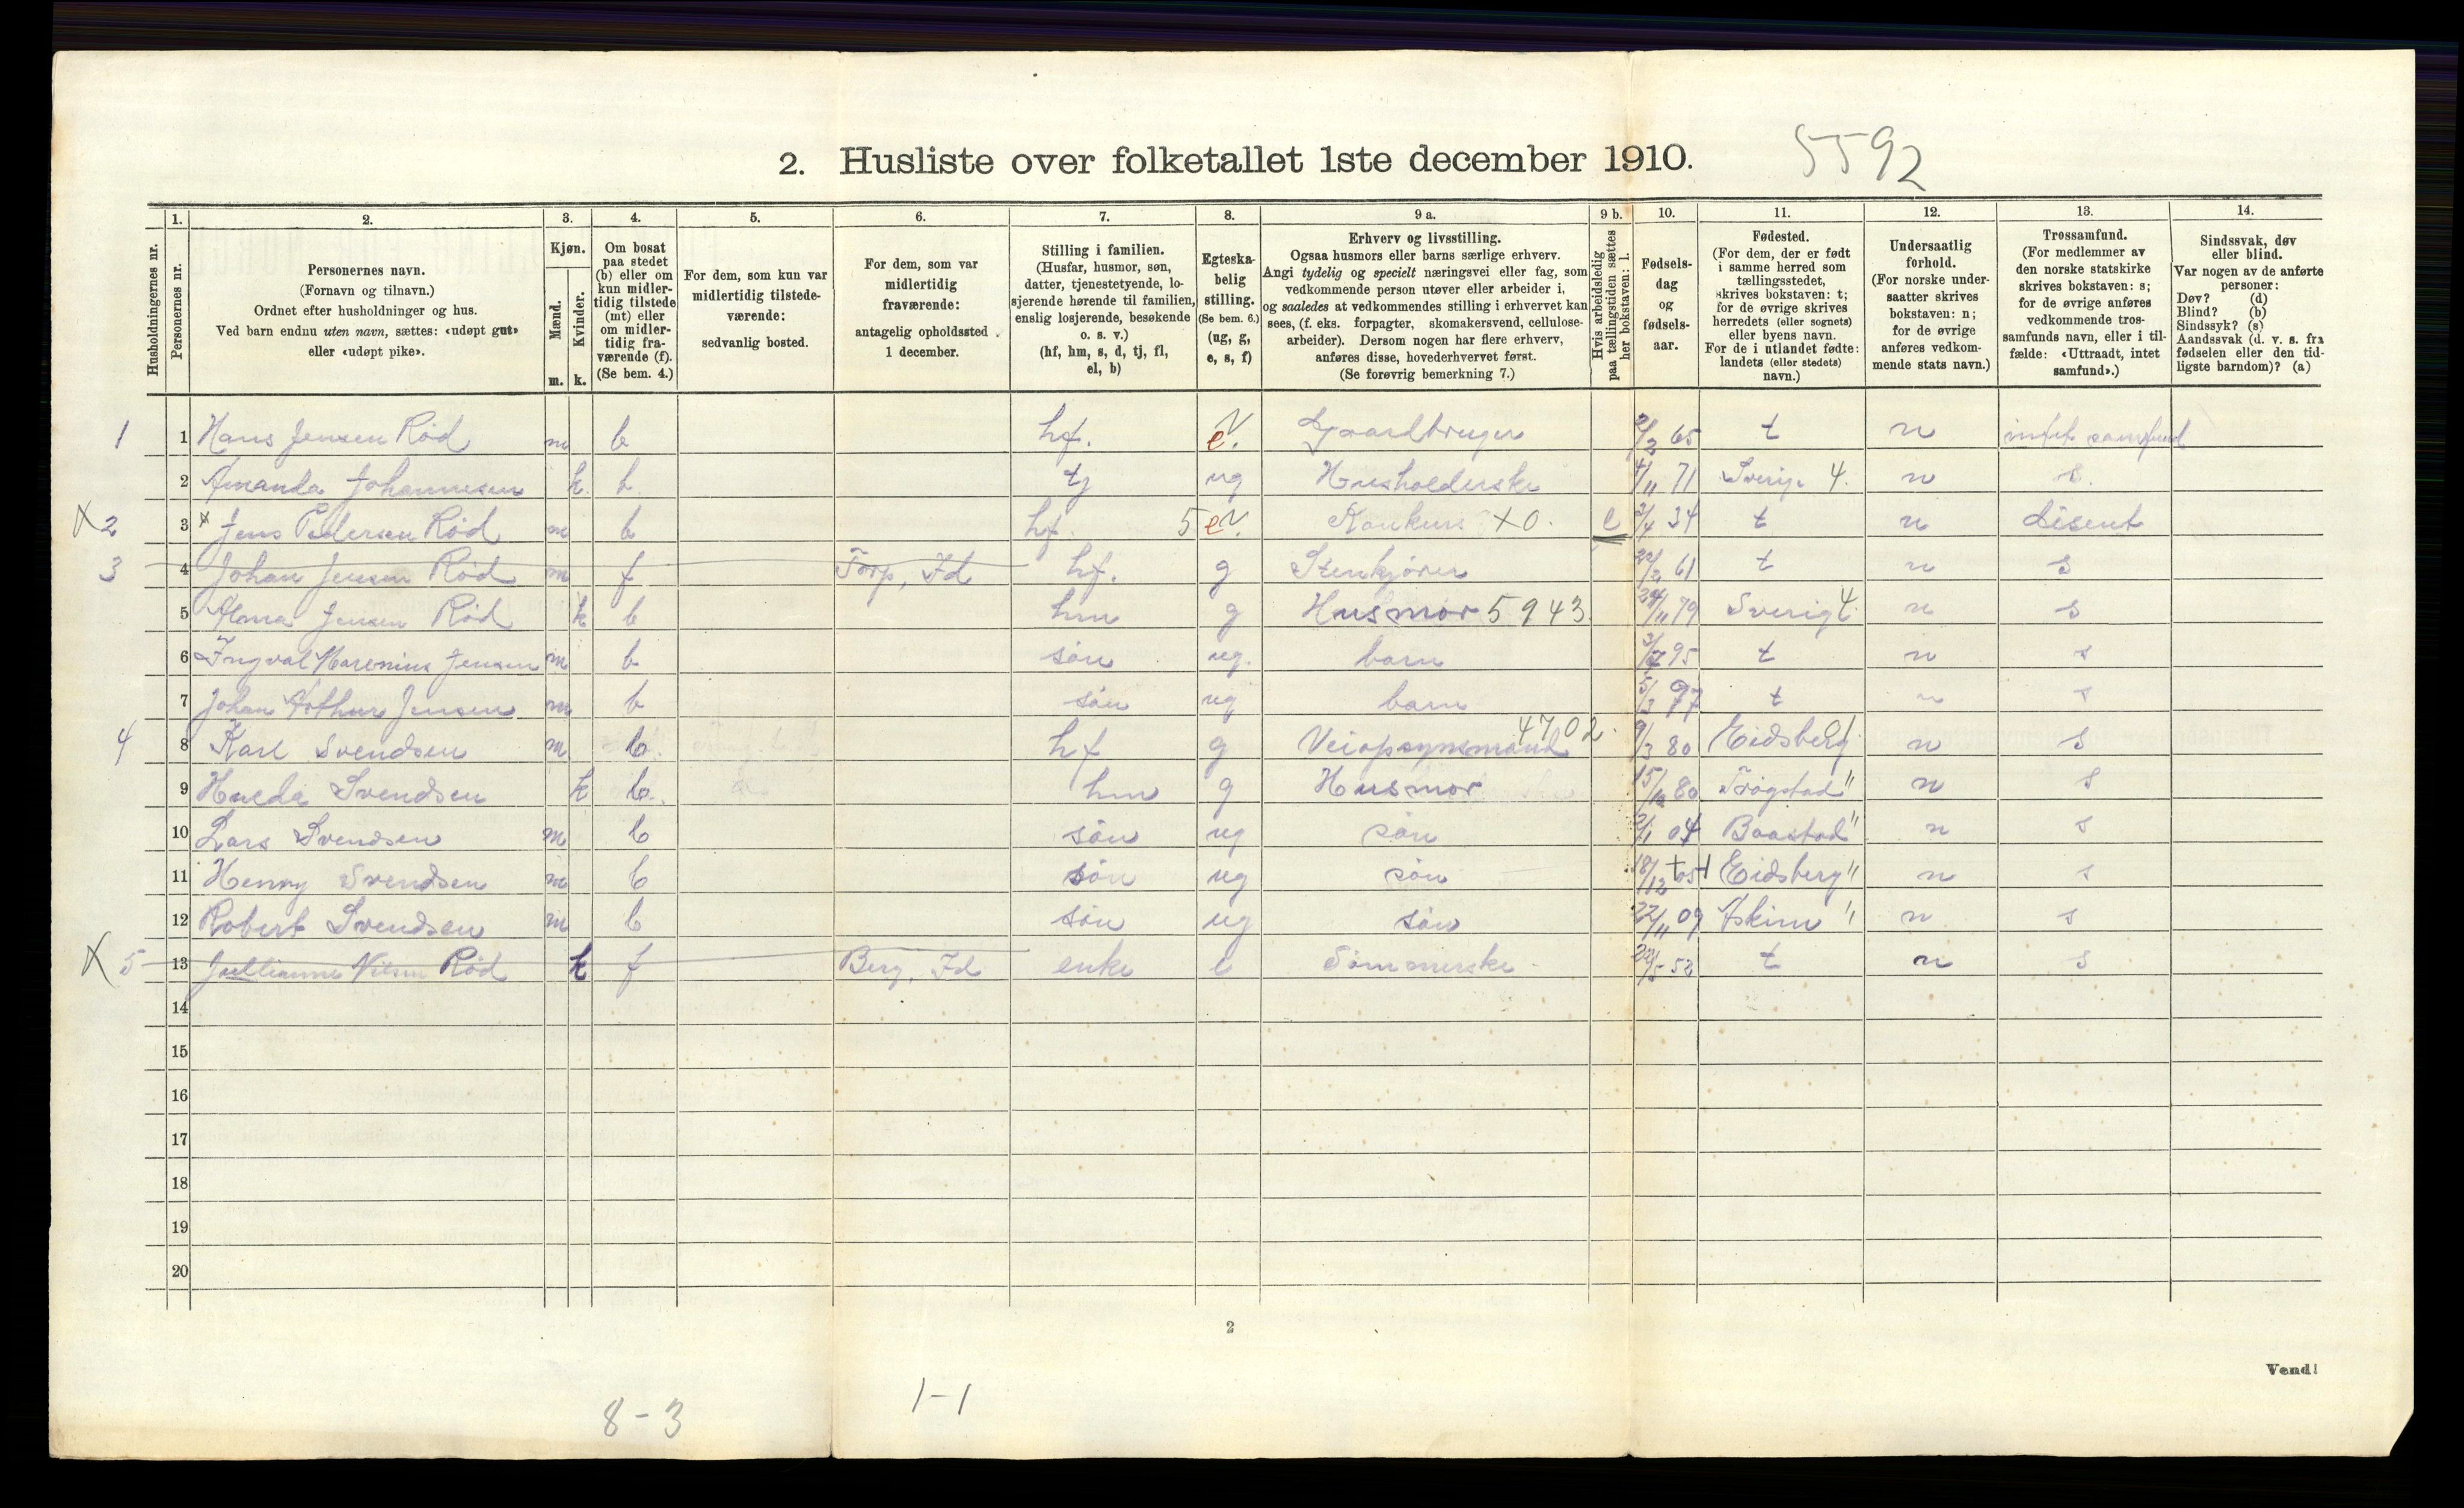 2. Husliste over folketallet 1ste december 1910. 5592
Husholdningernes nr.
1. Personernes nr.
2. Personernes navn.
(Fornavn og tilnavn.)
Ordnet efter husholdninger og hus.
Ved barn endnu uten navn, sættes: «udøpt gut»
eller «udøpt pike».
3. Kjøn.
Mænd. m.
Kvinder. k.
4. Om bosat
paa stedet
(b) eller om
kun midler-
tidig tilstede
(mt) eller
om midler-
tidig fra-
værende (f).
(Se bem. 4.)
5. For dem, som kun var
midlertidig tilstede-
værende:
sedvanlig bosted.
6. For dem, som var
midlertidig
fraværende:
antagelig opholdssted
1 december.
7. Stilling i familien.
(Husfar, husmor, søn,
datter, tjenestetyende, lo-
sjerende hørende til familien,
enslig losjerende, besøkende
o. s. v.)
(hf, hm, s, d, tj, fl,
el, b)
8. Egteska-
belig
stilling.
(Se bem. 6.)
(ug, g,
e, s, f)
9 a. Erhverv og livsstilling.
Ogsaa husmors eller barns særlige erhverv.
Angi tydelig og specielt næringsvei eller fag, som
vedkommende person utøver eller arbeider i,
og saaledes at vedkommendes stilling i erhvervet kan
sees, (f. eks. forpagter, skomakersvend, cellulose-
arbeider). Dersom nogen har flere erhverv,
anføres disse, hovederhvervet først.
(Se forøvrig bemerkning 7.)
9 b. Hvis arbeidsledig
paa tællingstiden sættes
her bokstaven: l.
10. Fødsels-
dag
og
fødsels-
aar.
11. Fødested.
(For dem, der er født
i samme herred som
tællingsstedet,
skrives bokstaven: t;
for de øvrige skrives
herredets (eller sognets)
eller byens navn.
For de i utlandet fødte:
landets (eller stedets)
navn.)
12. Undersaatlig
forhold.
(For norske under-
saatter skrives
bokstaven: n;
for de øvrige
anføres vedkom-
mende stats navn.)
13. Trossamfund.
(For medlemmer av
den norske statskirke
skrives bokstaven: s;
for de øvrige anføres
vedkommende tros-
samfunds navn, eller i til-
fælde: «Uttraadt, intet
samfund».)
14. Sindssvak, døv
eller blind.
Var nogen av de anførte
personer:
Døv? (d)
Blind? (b)
Sindssyk? (s)
Aandssvak (d. v. s. fra
fødselen eller den tid-
ligste barndom)? (a)
1 1 Hans Jensen Rød m b hf. e. Gaardbruger 2/2 65 t n intet samfund
2 Amanda Johannesen k. b. tj ug Husholderske 4/11 71 Sverige 4. n s.
X2 3 x Jens Pedersen Rød m b hf. 5 e. X0. 3/4 34 t n disent
3 4 Johan Jensen Rød m f Torp, Id hf. g Stenkjører 22/2 61 t n s
5 Jensen Rød k b hm g Husmor 5943 24/11 79 Sverige 4. n s
6 Ingval Marenius Jensen m b søn ug. barn 3/7 95 t n s
7 Johan Arthur Jensen m b søn ug barn 5/3 97 t n s
4 8 Karl Svendsen m b. hf g Veiopsynsmand 4702. 9/3 80 Eidsberg 01. n s
9 Hulda Svendsen k b. hm g Husmor 15/12 80 Trøgstad " n s
10 Lars Svendsen m b søn ug søn 3/1 04 Baastad " n s
11 Henny Svendsen m b søn ug søn 18/12 05 Eidsberg " n s
12 Robert Svendsen m b søn ug søn 22/11 09 Askim " n s
X 5 13 Jullianne Nilsen Rød k f Berg, Id enke e Sømmerske 52 t n s
14
15
16
17
18
19
20
2
Vend!
8-3 1-1